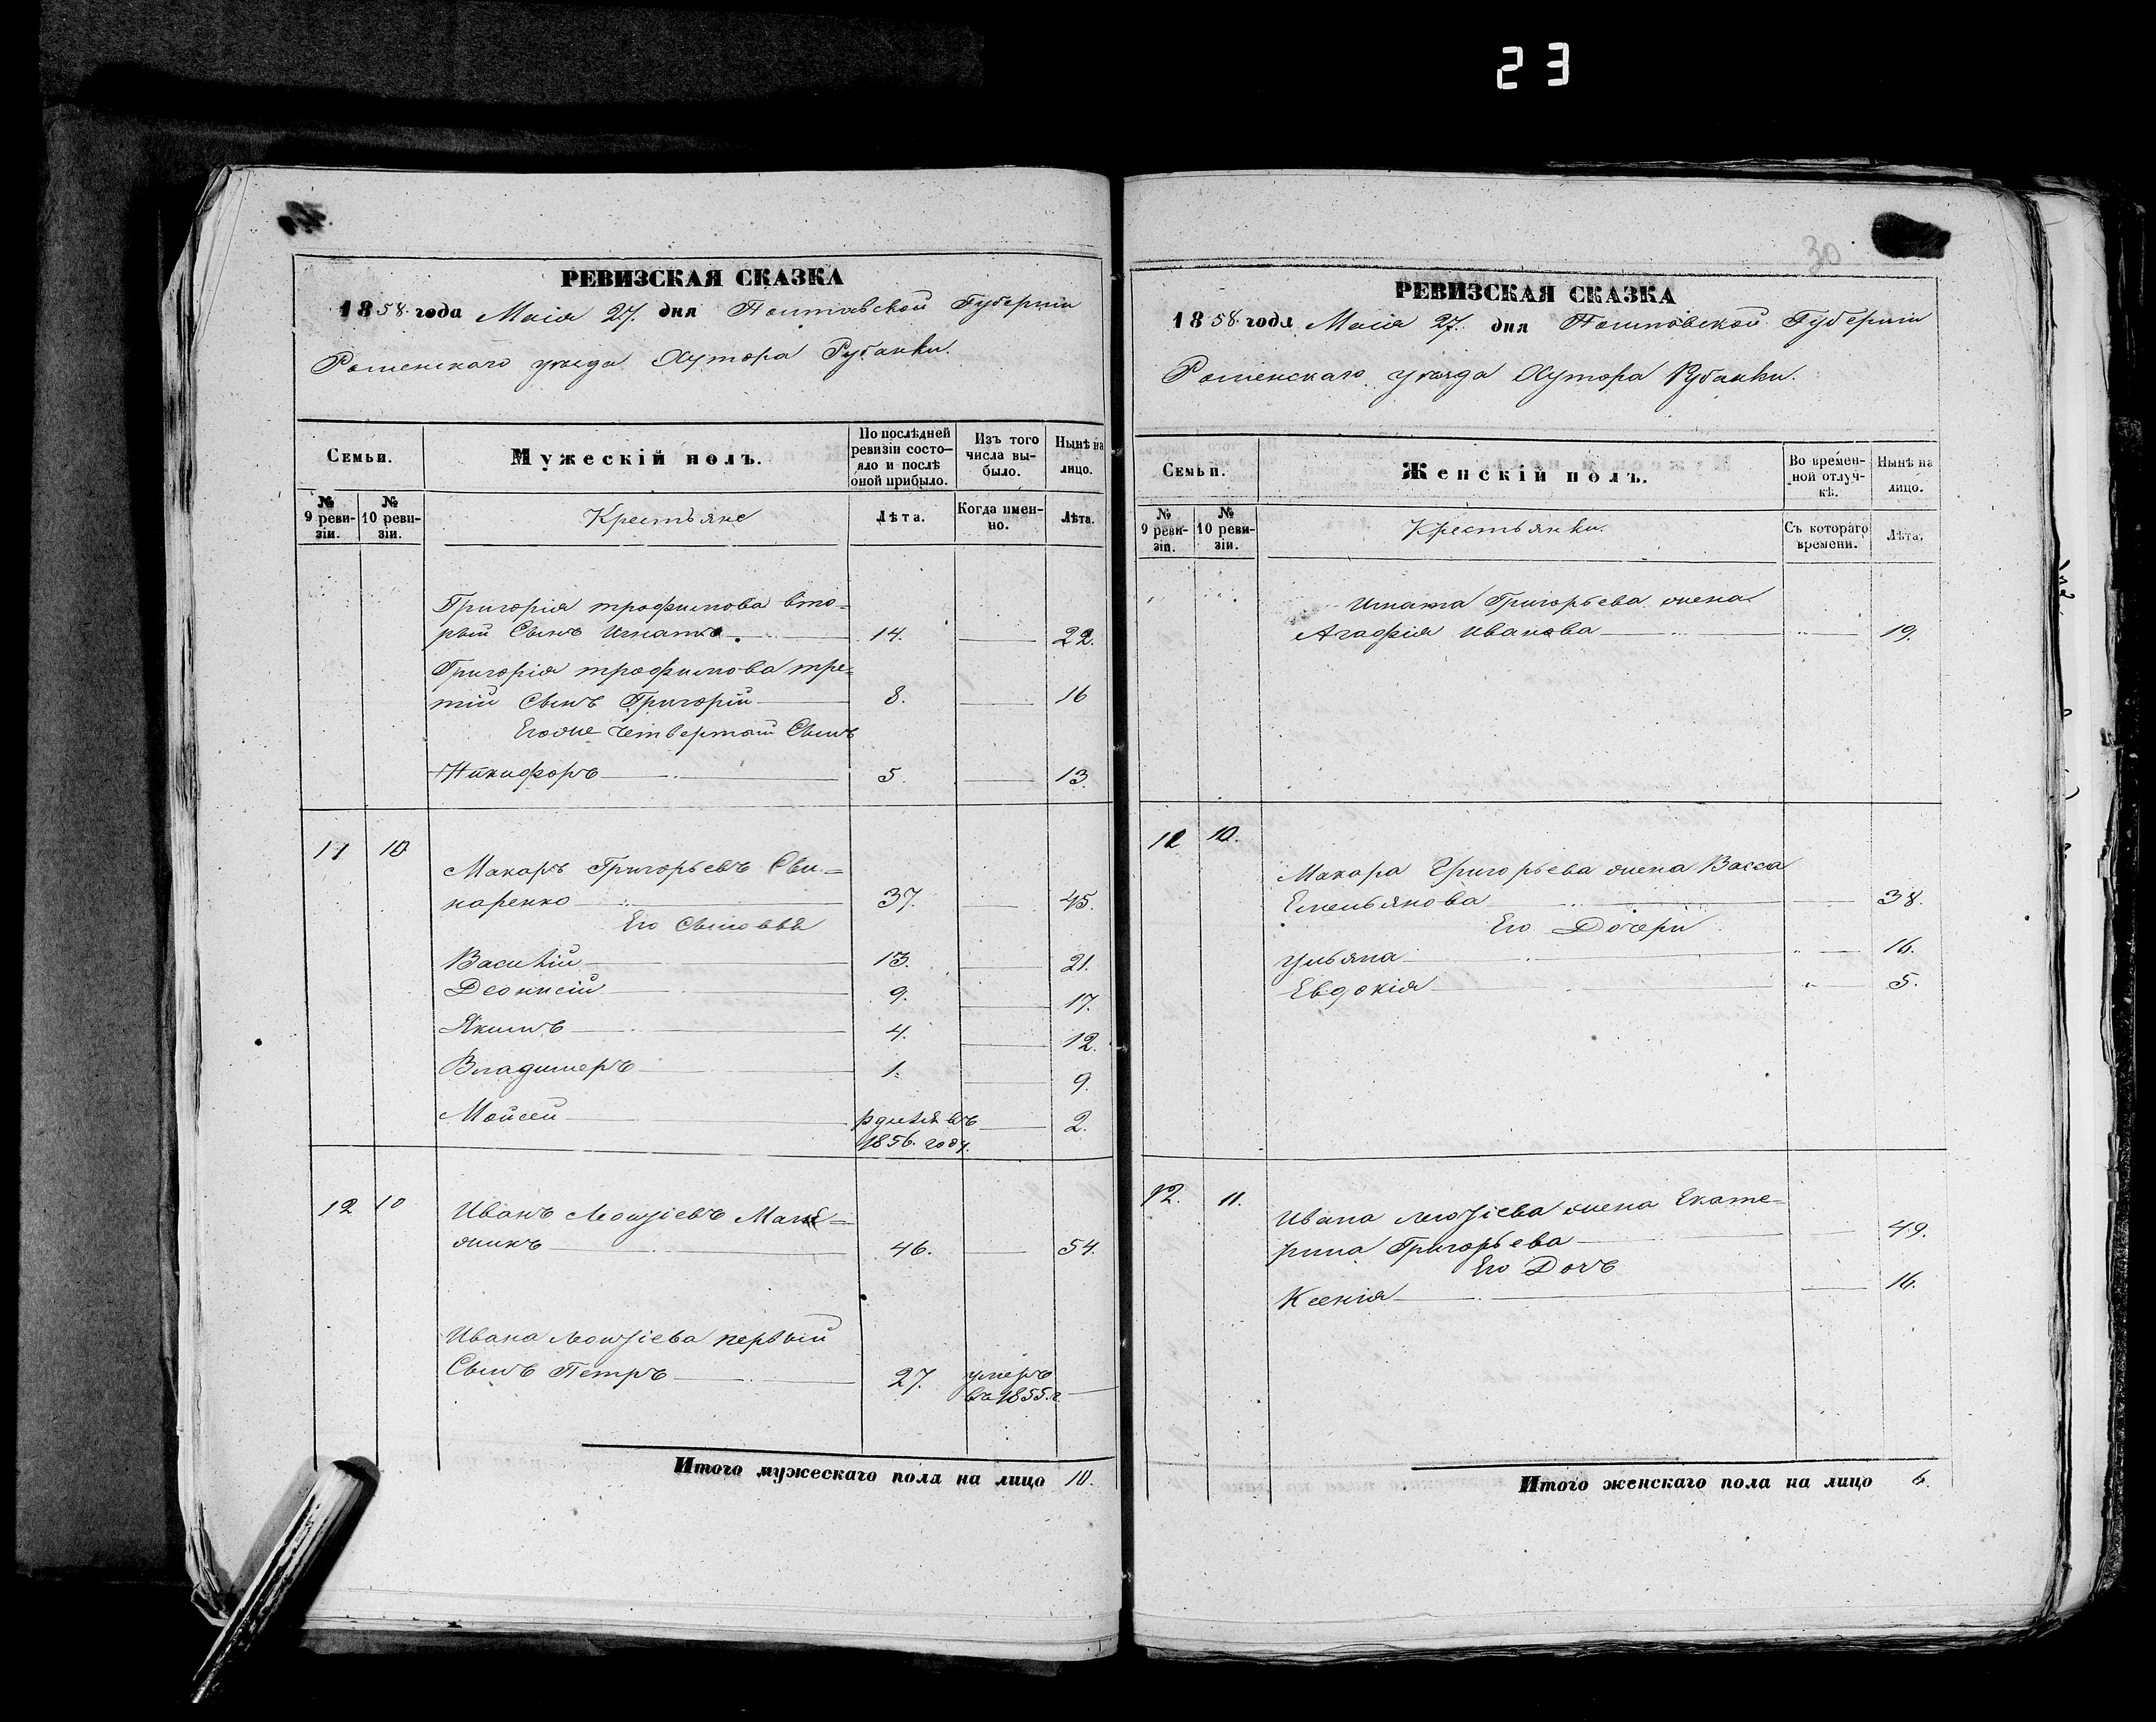 23
РЕВИЗСКАЯ СКАЗКА
1858. года Маія 27. дня Полтавской Губерніи
Роменскаго уѣзда Хутора Рубанки.
Семьи.
Мужескій полъ.
По послѣдней ревизіи состояло и послѣ оной прибыло.
Изъ того числа выбыло.
Нынѣ на лицо.
№ 9 ревизіи.
№ 10 ревизіи.
Крестьяне
Лѣта.
Когда именно.
Лѣта.
Григорія трофимова вто=
рый Сынъ Игнатъ. 14. 22.
Григорія трофимова тре=
тій Сынъ Григорій 8. 16
Егоже четвертый Сынъ
Никифоръ 5. 13.
11 10
Макаръ Григорьевъ Сви=
наренко 37. 45.
Его Сыновья
Василій 13. 21.
Деонисій 9. 17.
Якимъ 4. 12.
Владимеръ 1. 9.
Мойсей 2.
1856. году.
12 10 Иванъ
жникъ 46. 54.
Ивана первый
Сынъ Петръ 27. умеръ
въ 1855.г.
Итого мужескаго пола на лицо 10.
30
РЕВИЗСКАЯ СКАЗКА
1858. года Маія 27. дня Полтовской Губерніи
Роменскаго уѣзда Хутора Рубанки.
Семьи.
Женскій полъ.
Во временной отлучкѣ.
Нынѣ на лицо.
№ 9 ревизіи.
№ 10 ревизіи.
Крестьянки.
Съ котораго времени.
Лѣта.
Игната Григорьева жена
Агафія иванова 19.
11 10.
Макара Григорьева жена Васса
Емельянова 38.
Его Дочери
ульяна 16.
Евдокія 5.
12. 11.
Ивана жена Екате=
рина Григорьева 49.
Его Дочъ
Ксенія 16.
Итого женскаго пола на лицо 6.